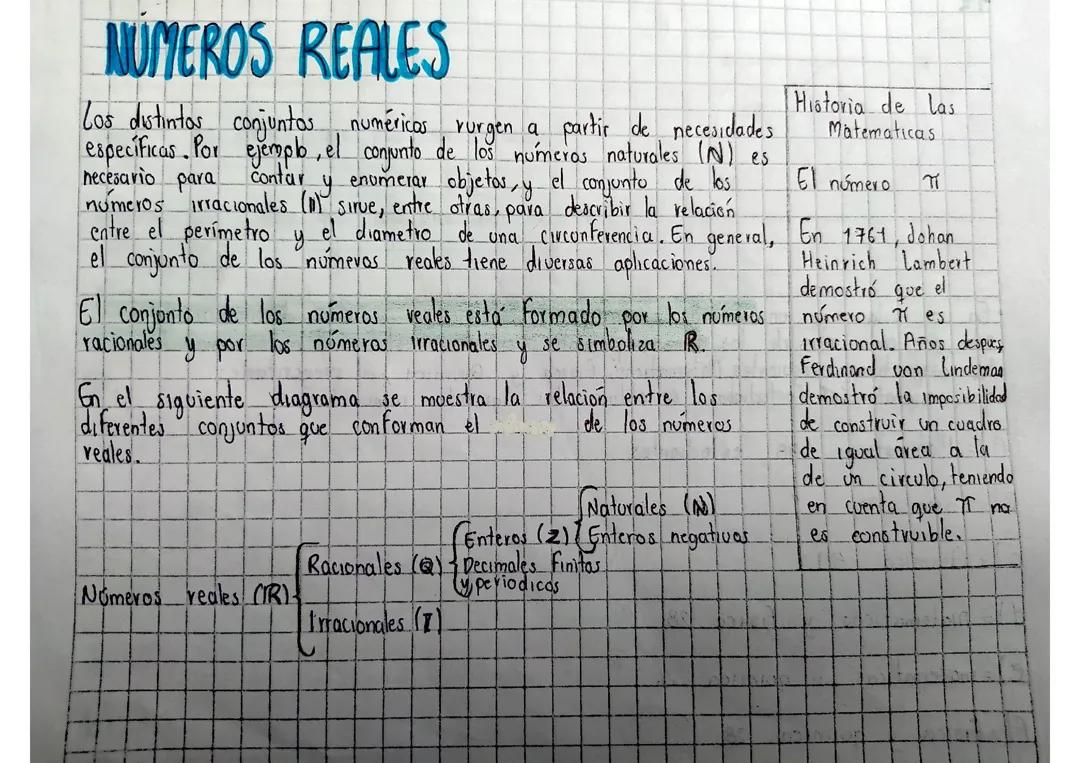 NÚMEROS REALES
Los distintos conjuntos numéricos rurgen a partir de necesidades
específicas. Por ejemplo, el conjunto de los números naturales (N) es
necesario para contar y enumerar objetos, y el conjunto de los
números irracionales (I) sirve, entre otras, para describir la relación
entre el perímetro y el diametro de una circonferencia. En general,
el conjunto de los números reales tiene diversas aplicaciones.
El conjonto de los números reales está formado por los números
racionales y por los números irracionales y se simboliza R.
En el siguiente diagrama se muestra la relación entre los
diferentes conjuntos que conforman el de los números
reales.
Naturales (N)
Enteros (Z) Enteros negativos
Racionales (Q) Decimales finitos
y periodicos
Números reales (R)
Irracionales (I)
Historia de las
Matematicas
El número π
En 1761, Johan
Heinrich Lambert
demostró que el
número π es
irracional. Años despues,
Ferdinand von Lindeman
demostró la imposibilidad
de construir un cuadro
de igual área a la
de un circulo, teniendo
en cuenta que π no
es construible.